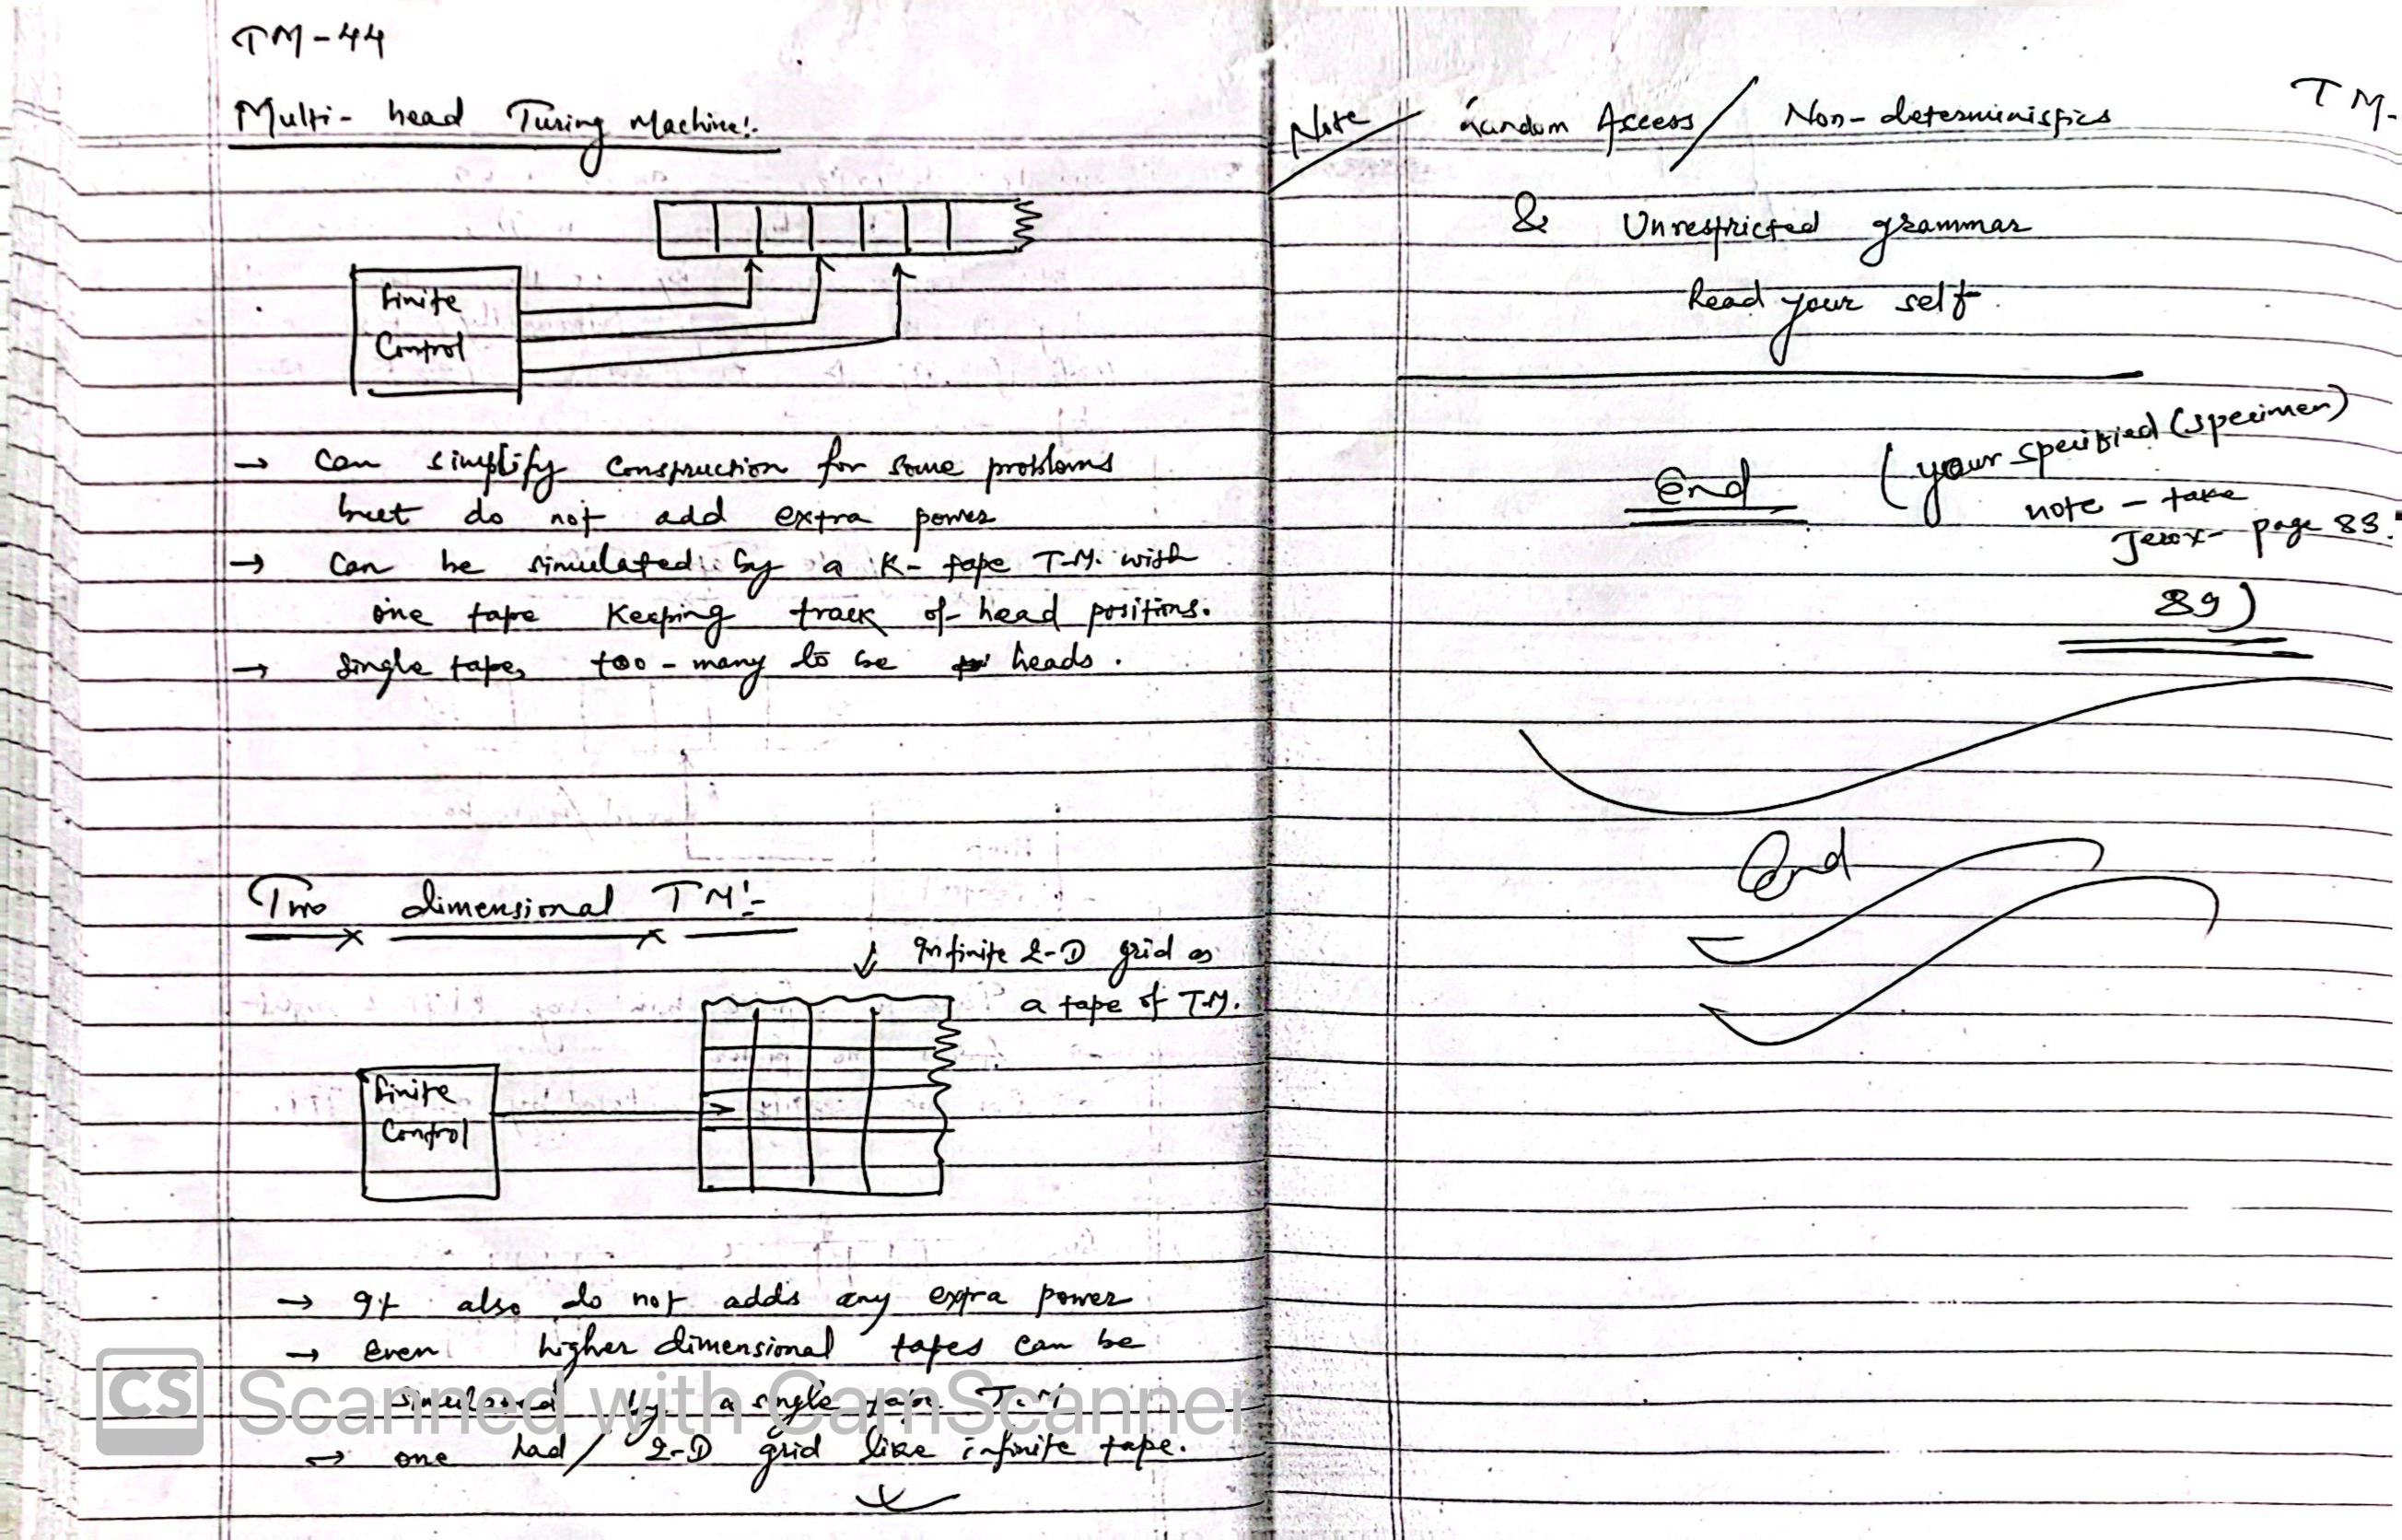 TM-44
Multi-head Turing Machine:-
Finite
Control
→ Can simplify construction for some problems
but do not add extra power
→ Can be simulated by a K-tape T.M. with
one tape keeping track of head positions.
→ Single tape, too-many to be heads.
Two dimensional TM:-
↓ Infinite 2-D grid as
a tape of T.M.
Finite
Control
→ It also do not adds any extra power
→ Even higher dimensional tapes can be
simulated by a single tape T.M
→ one had / 2-D grid like infinite tape.
CS Scanned with CamScanner
TM-
Note / Random Access / Non-deterministics
& Unrestricted grammar
Read your self
End (your specified (specimen)
note - take
Jerox- page 83.
89)
End